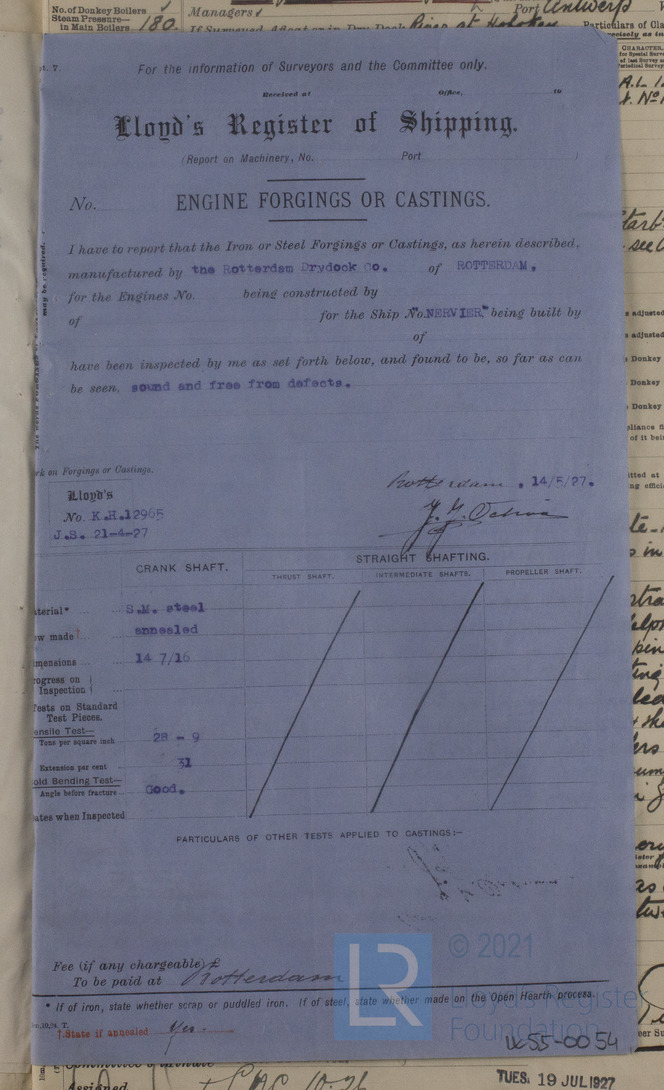 No. of Donkey Boilers
Steam Pressure—
in Main Boilers 180.
Managers
Port Antwerp
If Surveyed Afloat or in Dry Dock River at Hoboken
Particulars of Cla
For the information of Surveyors and the Committee only.
Received at Office, to
Lloyd's Register of Shipping.
(Report on Machinery, No. Port )
No. ENGINE FORGINGS OR CASTINGS.
I have to report that the Iron or Steel Forgings or Castings, as herein described,
manufactured by the Rotterdam Drydock Co. of ROTTERDAM.
for the Engines No. being constructed by
of for the Ship No. "NERVIER" being built by
of
have been inspected by me as set forth below, and found to be, so far as can
be seen, sound and free from defects.
rk on Forgings or Castings.
Rotterdam, 14/5/27.
Lloyd's
No. K.H.12965
J.S. 21-4-27
CRANK SHAFT. STRAIGHT SHAFTING.
THRUST SHAFT. INTERMEDIATE SHAFTS. PROPELLER SHAFT.
terial* S.M. steel
w made† annealed
mensions 14 7/16
rogress on
Inspection
Tests on Standard
Test Pieces.
ensile Test—
Tons per square inch 28 - 9
Extension per cent 31
old Bending Test—
Angle before fracture Good.
ates when Inspected
PARTICULARS OF OTHER TESTS APPLIED TO CASTINGS:—
Fee (if any chargeable) £
To be paid at Rotterdam
* If of iron, state whether scrap or puddled iron. If of steel, state whether made on the Open Hearth process.
†State if annealed Yes
LR
© 2021
Lloyd's Register
Foundation
W655-0054
Committee's Minute
Assigned
TUES. 19 JUL 1927